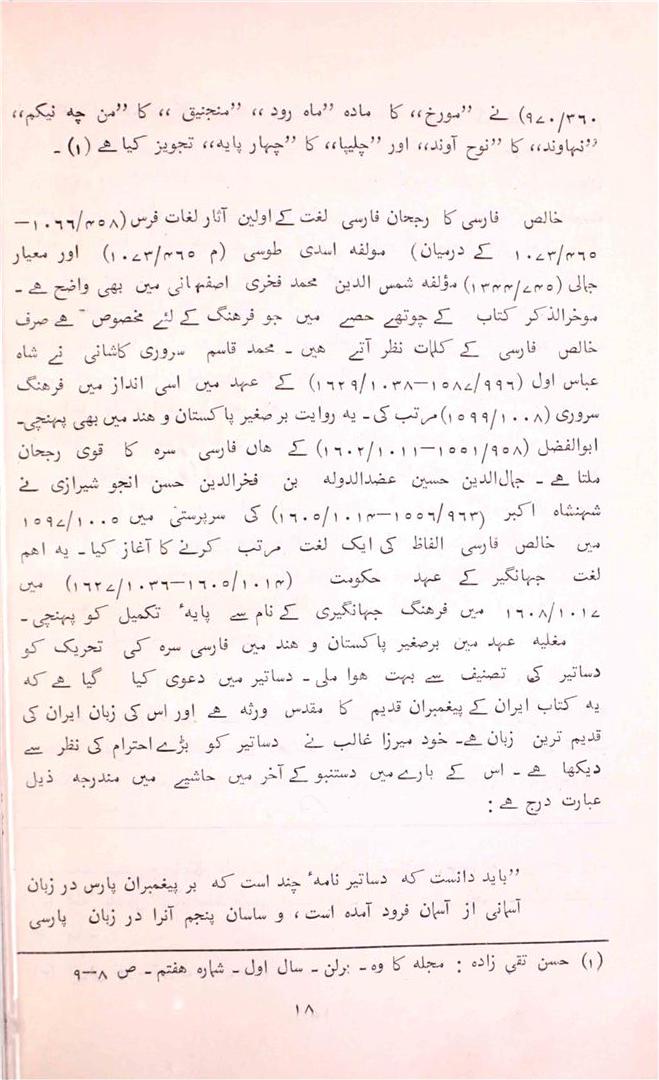 ۳۶۰/۹۷۰) نے ”مورخ،، کا مادہ ”ماہ رود،، ”منجنیق،، کا ”من چہ نیکم،،
”نہاوند،، کا ”نوح آوند،، اور ”چلیپا،، کا ”چہار پایہ،، تجویز کیا ہے (۱) ۔
خالص فارسی کا رجحان فارسی لغت کے اولین آثار لغات فرس (۴۵۸/۱۰۶۶—
۴۶۵/۱۰۷۳ کے درمیان) مولفہ اسدی طوسی (م ۴۶۵/۱۰۷۳) اور معیار
جالی (۷۴۵/۱۳۴۴) مؤلفہ شمس الدین محمد فخری اصفہانی میں بھی واضح ہے ۔
موخرالذکر کتاب کے چوتھے حصے میں جو فرہنگ کے لئے مخصوص ہے صرف
خالص فارسی کے کلمات نظر آتے ہیں ۔ محمد قاسم سروری کاشانی نے شاہ
عباس اول (۹۹۶/۱۵۸۷—۱۰۳۸/۱۶۲۹) کے عہد میں اسی انداز میں فرہنگ
سروری (۱۰۰۸/۱۵۹۹) مرتب کی ۔ یہ روایت بر صغیر پاکستان و ہند میں بھی پہنچی ۔
ابوالفضل (۹۵۸/۱۵۵۱—۱۰۱۱/۱۶۰۲) کے ہاں فارسی سرہ کا قوی رجحان
ملتا ہے ۔ جمال الدین حسین عضدالدولہ بن فخرالدین حسن انجو شیرازی نے
شہنشاہ اکبر (۹۶۳/۱۵۵۶—۱۰۱۴/۱۶۰۵) کی سرپرستی میں ۱۰۰۵/۱۵۹۷
میں خالص فارسی الفاظ کی ایک لغت مرتب کرنے کا آغاز کیا ۔ یہ اہم
لغت جہانگیر کے عہد حکومت (۱۰۱۴/۱۶۰۵—۱۰۳۶/۱۶۲۷) میں
۱۰۱۷/۱۶۰۸ میں فرہنگ جہانگیری کے نام سے پایہٴ تکمیل کو پہنچی ۔
مغلیہ عہد میں برصغیر پاکستان و ہند میں فارسی سرہ کی تحریک کو
دساتیر کی تصنیف سے بہت ہوا ملی ۔ دساتیر میں دعوی کیا گیا ہے کہ
یہ کتاب ایران کے پیغمبران قدیم کا مقدس ورثہ ہے اور اس کی زبان ایران کی
قدیم ترین زبان ہے۔ خود میرزا غالب نے دساتیر کو بڑے احترام کی نظر سے
دیکھا ہے ۔ اس کے بارے میں دستنبو کے آخر میں حاشیے میں مندرجہ ذیل
عبارت درج ہے :
”باید دانست کہ دساتیر نامہٴ چند است کہ بر پیغمبران پارس در زبان
آسمانی از آسمان فرود آمدہ است، و ساسان پنجم آنرا در زبان پارسی
(۱) حسن تقی زادہ : مجلہ کاوہ ۔ برلن ۔ سال اول ۔ شمارہ ہفتم ۔ ص ۸—۹
۱۸